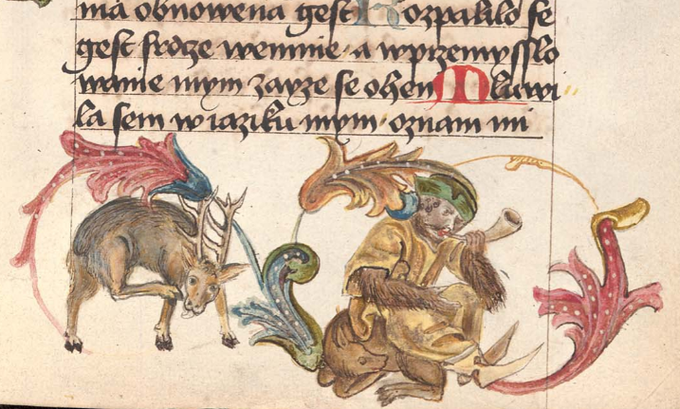 ma obnowena geſt Rozpalilo ſe
geſt ſrdze wemnie · a wprzemyſſlo
wanie mym zazze ſe ohen Mluwi
la ſem w iaziku mym · oznam mi